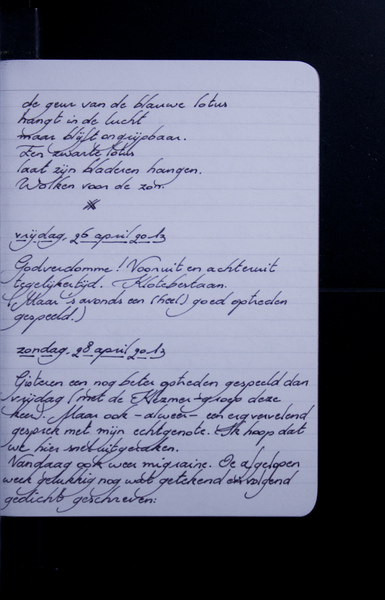 de geur van de blauwe lotus
hangt in de lucht
maar blijft ongrijpbaar.
Een zwarte lotus
laat zijn bladeren hangen.
Wolken voor de zon.
vrijdag, 26 april 2013
Godverdomme! Vooruit en achteruit
tegelijkertijd. Klotebestaan.
(Maar 's avonds een (heel) goed optreden
gespeeld.)
zondag, 28 april 2013
Gisteren een nog beter optreden gespeeld dan
vrijdag (met de Klezmer-groep deze
keer). Maar ook - alweer - een erg vervelend
gesprek met mijn echtgenote. Ik hoop dat
we hier snel uitgeraken.
Vandaag ook weer migraine. De afgelopen
week gelukkig nog wat getekend en volgend
gedicht geschreven: